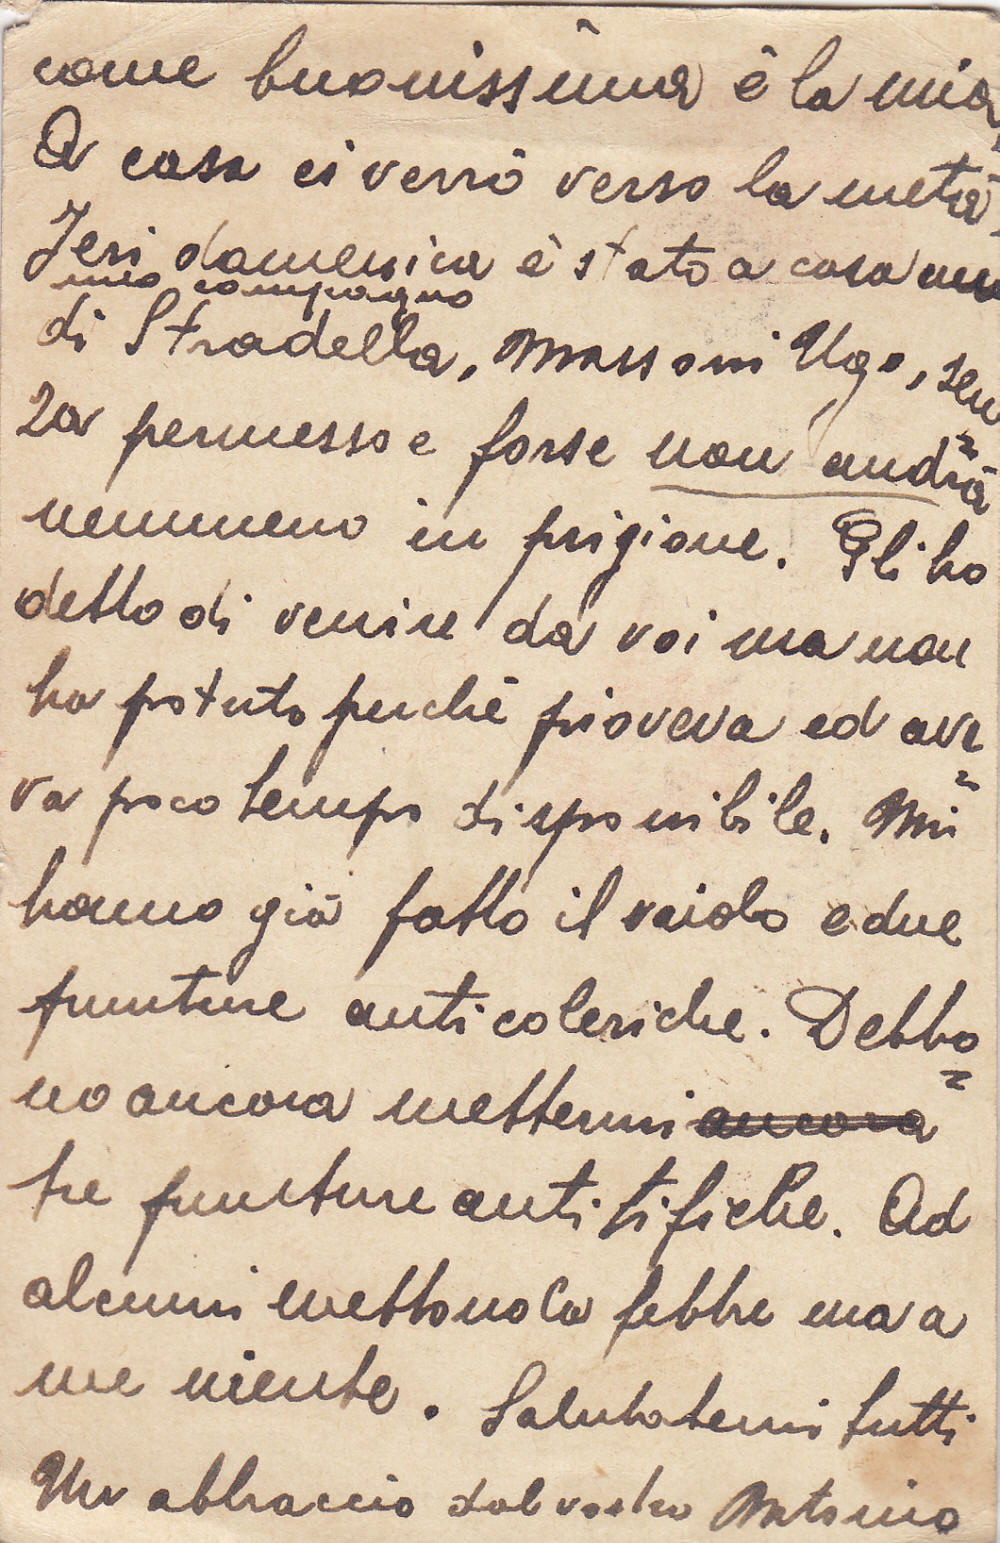 come buonissima è la mia.
A casa ci verrò verso la metà.
Jeri domenica è stato a casa un
mio compagno
di Stradella, Massoni Ugo, sen
za permesso e forse non andrà
nemmeno in prigione. Gli ho
detto di venire da voi ma non
ha potuto perchè pioveva ed ave=
va poco tempo disponibile. Mi
hanno già fatto il vaiolo e due
punture anticoleriche. Debbo=
no ancora mettermi ancora
tre punture antitifiche. Ad
alcuni mettono la febbre ma a
me niente. Salutatemi tutti
Un abbraccio dal vostro Antonio